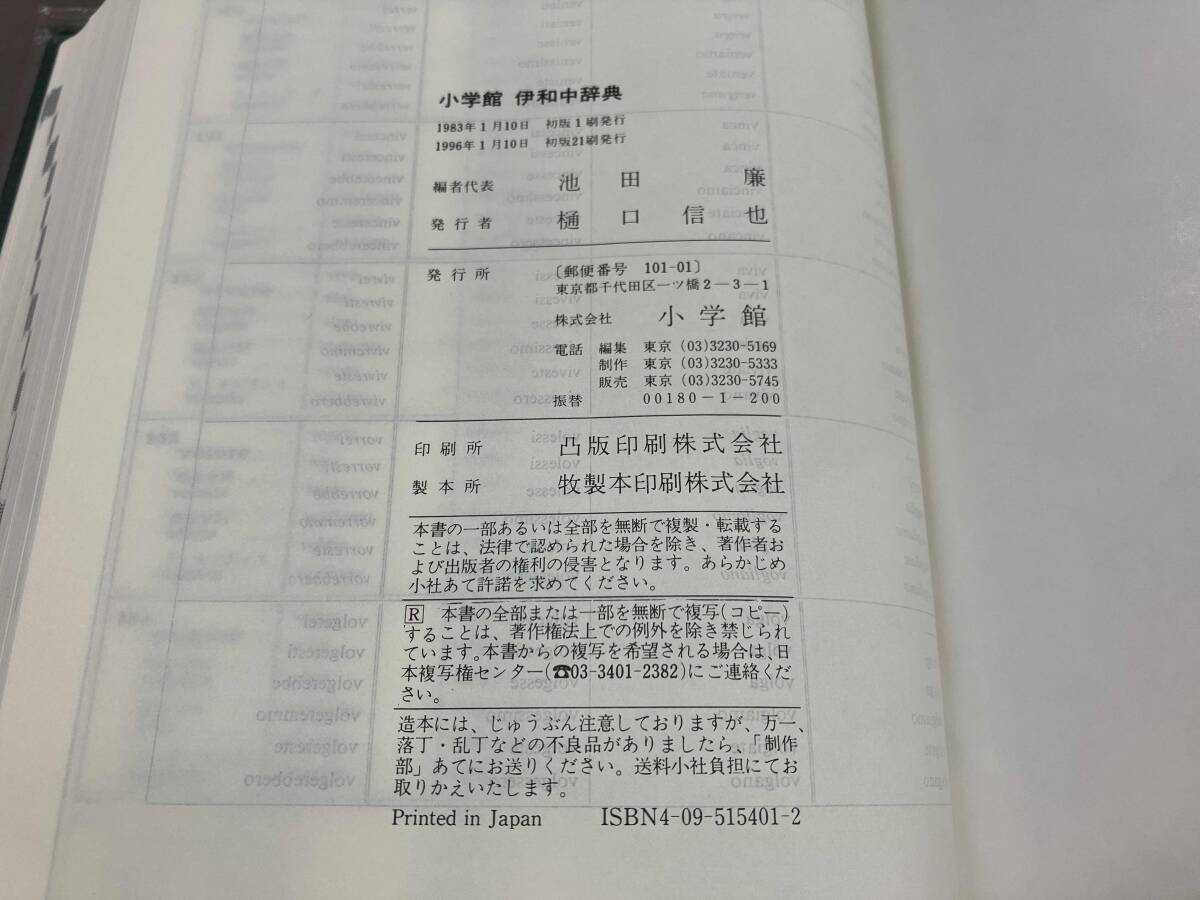 小学館 伊和中辞典
1983年1月10日 初版1刷発行
1996年1月10日 初版21刷発行
編者代表 池田 廉
発行者 樋口信也
発行所 〔郵便番号 101-01〕
東京都千代田区一ツ橋2―3―1
株式会社 小学館
電話 編集 東京 (03)3230-5169
制作 東京 (03)3230-5333
販売 東京 (03)3230-5745
振替 00180-1-200
印刷所 凸版印刷株式会社
製本所 牧製本印刷株式会社
本書の一部あるいは全部を無断で複製・転載する
ことは、法律で認められた場合を除き、著作者お
よび出版者の権利の侵害となります。あらかじめ
小社あて許諾を求めてください。
R 本書の全部または一部を無断で複写(コピー)
することは、著作権法上での例外を除き禁じられ
ています。本書からの複写を希望される場合は、日
本複写権センター(☎03-3401-2382)にご連絡くだ
さい。
造本には、じゅうぶん注意しておりますが、万一、
落丁・乱丁などの不良品がありましたら、「制作
部」あてにお送りください。送料小社負担にてお
取りかえいたします。
Printed in Japan ISBN4-09-515401-2